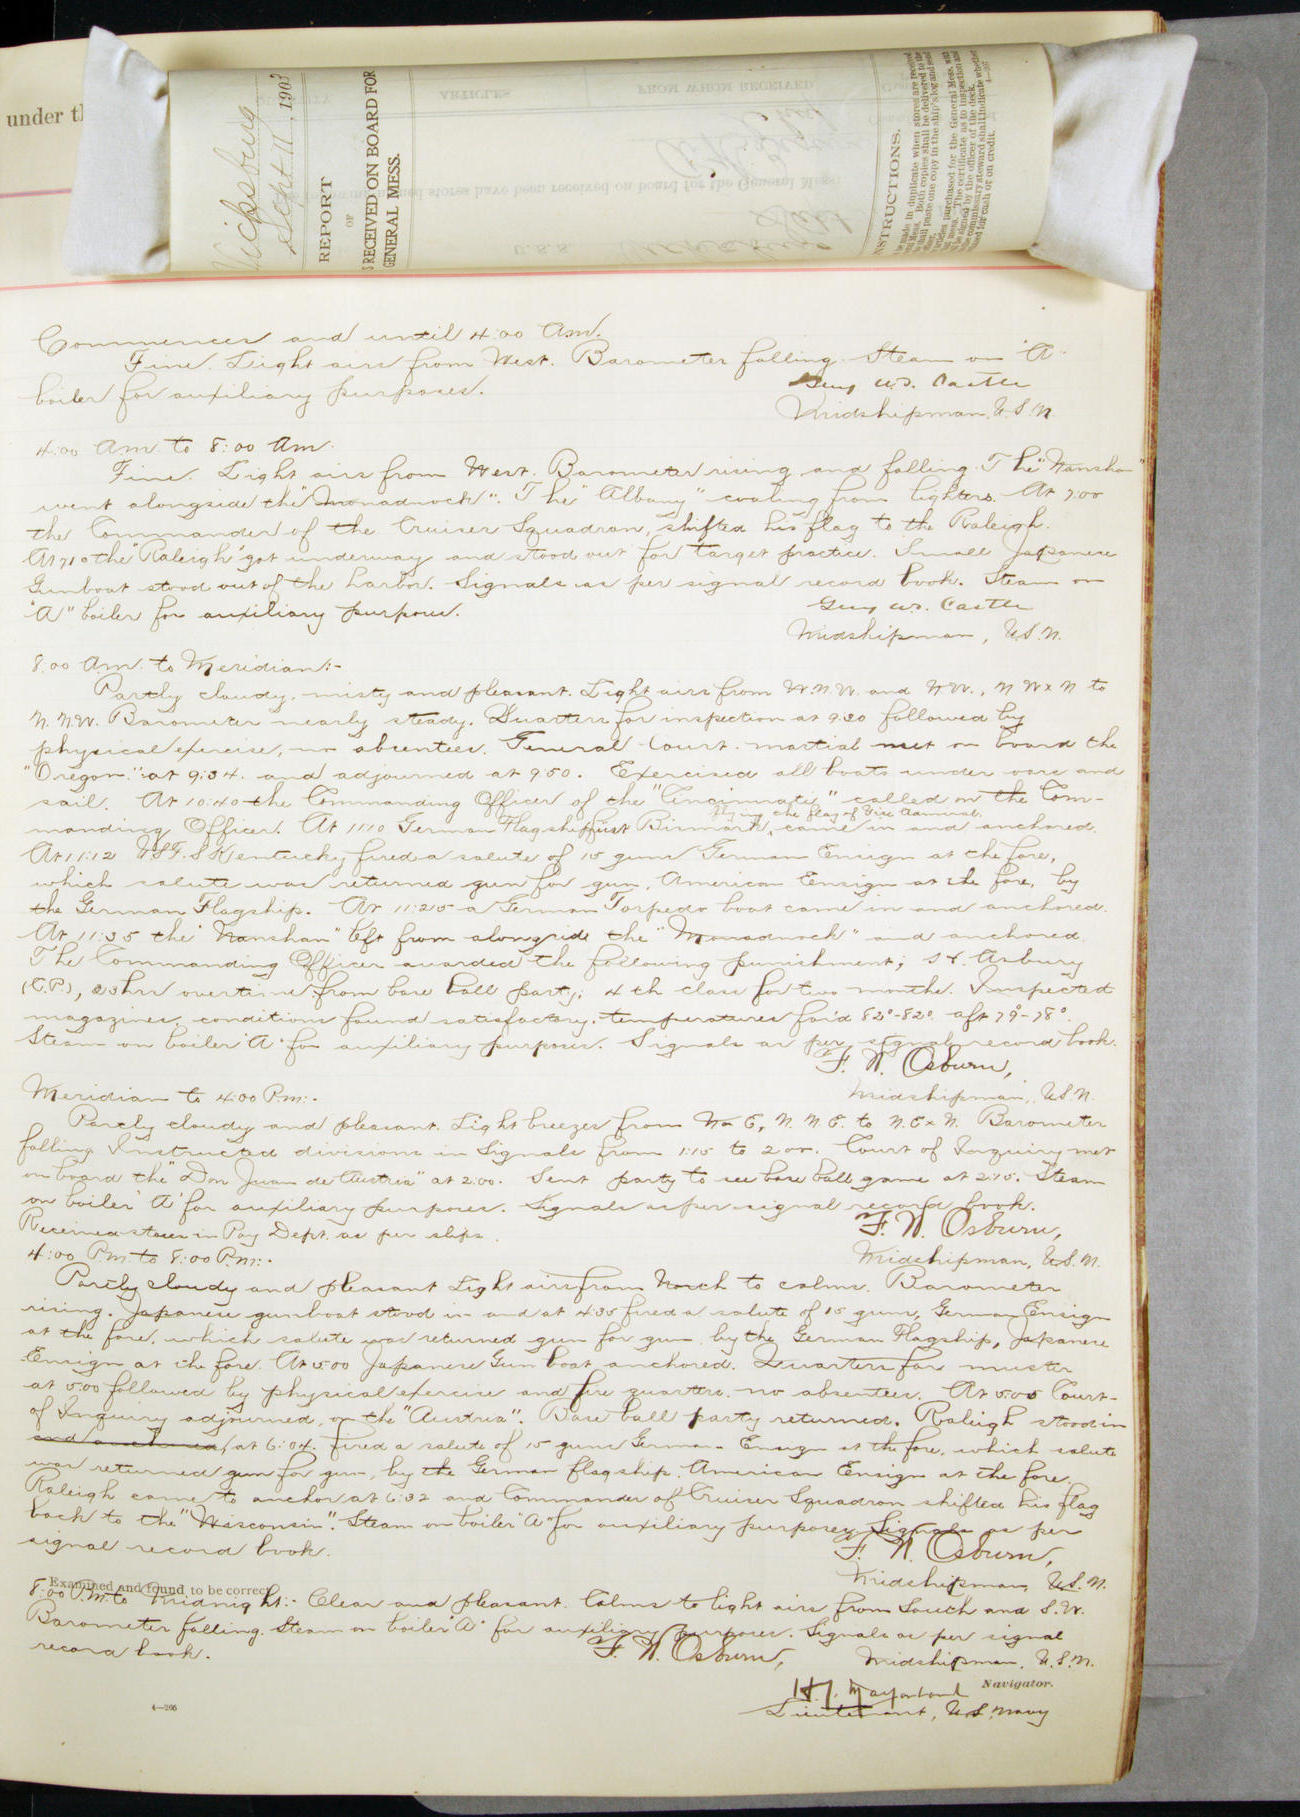 under th
Vicksburg
Sept 11, 1903
REPORT
OF
S RECEIVED ON BOARD FOR
GENERAL MESS.
ARTICLES
FROM WHOM RECEIVED
stores have been received on board for the General Mess.
U.S.S.
NSTRUCTIONS.
made in duplicate when stores are received
Both copies shall be delivered to the
shall paste one copy in the ship's log and send
purchased for the General Mess, with
mess. The certificate as to inspection and
be signed by the officer of the deck.
commissary steward shall indicate whether
for cash or on credit.
Commences and until 4:00 Am.
Fine. Light airs from West. Barometer falling. Steam on "A"
boiler for auxiliary purposes.
Guy W.S. Castle
Midshipman, U.S.N.
4:00 Am to 8:00 Am.
Fine. Light airs from West. Barometer rising and falling. The "Nanshan"
went alongside the "Monadnock". The "Albany" coaling from lighters. At 7:00
the Commander of the Cruiser Squadron, shifted his flag to the Raleigh.
At 710 the "Raleigh" got underway and stood out for target practice. Small Japanese
Gunboat stood out of the harbor. Signals as per signal record book. Steam on
"A" boiler for auxiliary purposes.
Guy W.S. Castle
Midshipman, U.S.N.
8:00 Am. to Meridian:-
Partly cloudy, misty and pleasant. Light airs from W.N.W. and N.W., N W x N to
N.N.W. Barometer nearly steady. Quarters for inspection at 9:30 followed by
physical exercise, no absentees. General Court-martial met on board the
"Oregon" at 9:34. and adjourned at 9:50. Exercised all boats under oars and
sail. At 10:40 the Commanding Officer of the "Cincinnati" called on the Com-
flying the flag of Vice Admiral,
manding Officer. At 11:10 German Flagship Fürst Bismark, came in and anchored.
At 11:12 U.S.F.S Kentucky fired a salute of 15 guns German Ensign at the fore,
which salute was returned gun for gun, American Ensign at the fore, by
the German Flagship. At 11:25 a German Torpedo boat came in and anchored.
At 11:35 the "Nanshan" left from alongside the "Monadnock" and anchored.
The Commanding Officer awarded the following punishment; Asbury
(C.P.), 23 hrs overtime from base ball party; 4th class for two months. Inspected
magazines, conditions found satisfactory, temperatures for'd 82°-82°. aft 79°-78°.
Steam on boiler "A" for auxiliary purposes. Signals as per signal record book.
F. W. Osburn,
Midshipman, U.S.N.
Meridian to 4:00 P.m:-
Partly cloudy and pleasant. Light breezes from N x E, N.N.E. to N.E x N. Barometer
falling. Instructed divisions in Signals from 1:15 to 2:00. Court of Inquiry met
on board the "Don Juan de Austria" at 2:00. Sent party to see base ball game at 2:15. Steam
on boiler "A" for auxiliary purposes. Signals as per signal record book.
Received stores in Pay Dept. as per slips.
F. W. Osburn,
Midshipman, U.S.N.
4:00 P.m. to 8:00 P.m:-
Partly cloudy and pleasant Light airs from North to calms. Barometer
rising. Japanese gunboat stood in and at 4:35 fired a salute of 15 guns, German Ensign
at the fore, which salute was returned gun for gun by the German Flagship, Japanese
Ensign at the fore. At 5:00 Japanese Gun boat anchored. Quarters for muster
at 5:00 followed by physical exercise and fire quarters. no absentees. At 5:05 Court-
of Inquiry adjourned, on the "Austria". Base ball party returned. Raleigh stood in
and anchored, at 6:04. fired a salute of 15 guns German Ensign at the fore, which salute
was returned gun for gun, by the German flagship, American Ensign at the fore.
Raleigh came to anchor at 6:32 and Commander of Cruiser Squadron shifted his flag
back to the "Wisconsin". Steam on boiler "A" for auxiliary purposes Signals as per
signal record book.
F. W. Osburn,
Midshipman, U.S.N.
Examined and found to be correct.
8:00 P.m. to Midnight:- Clear and pleasant. Calms to light airs from South and S.W.
Barometer falling. Steam on boiler "A" for auxiliary purposes. Signals as per signal
record book.
F. W. Osburn,
Midshipman, U.S.N.
Navigator.
Lieutenant, U.S. Navy
4—266